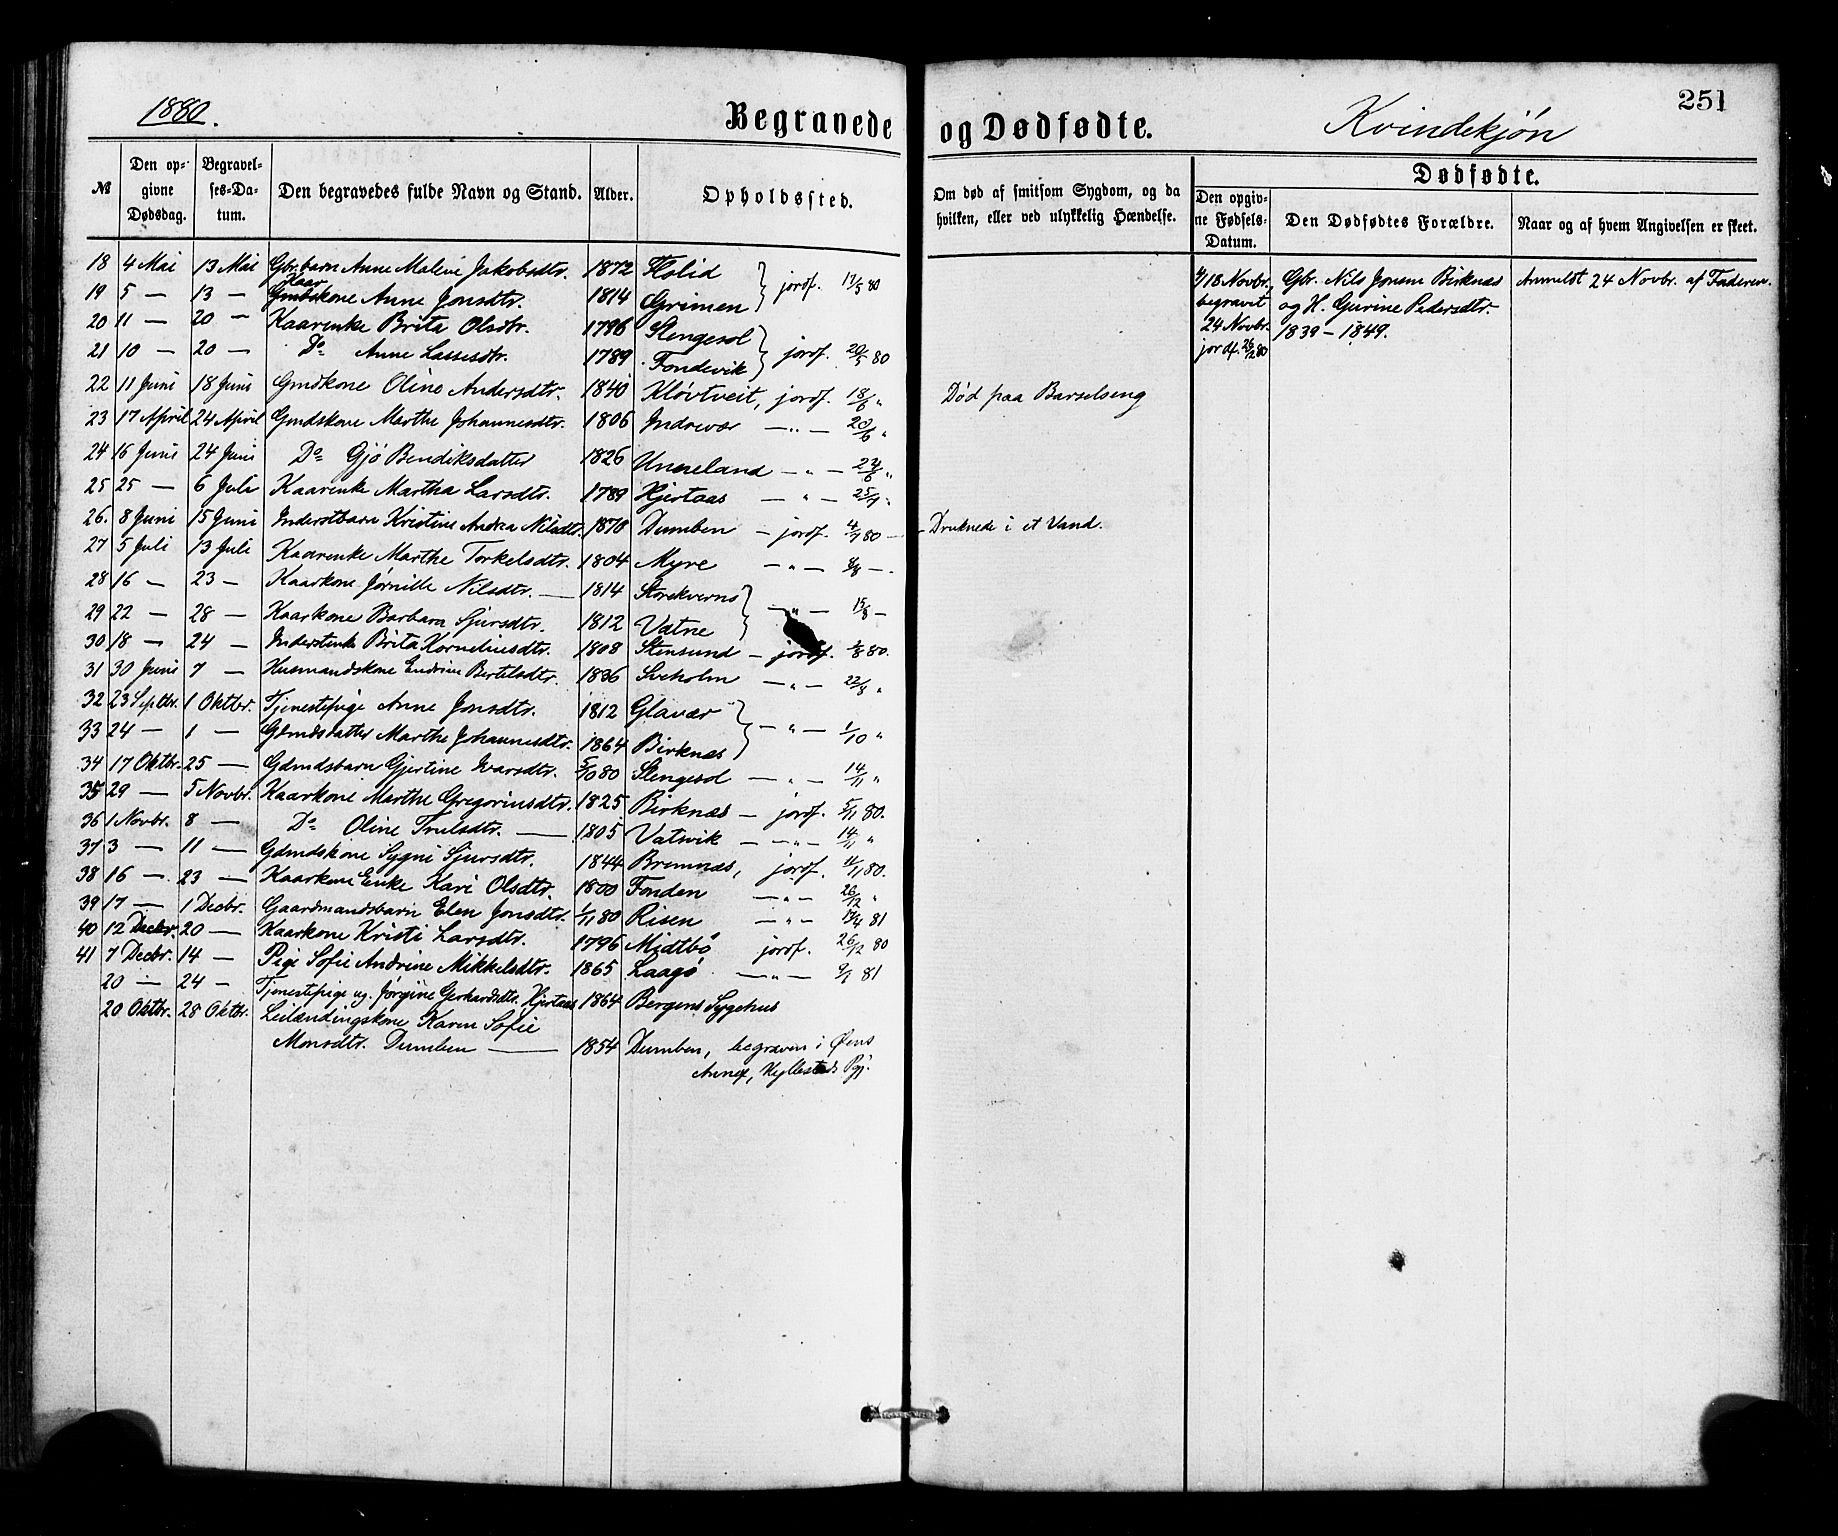 1880.
Begravede og Dødfødte.
Kvindekjøn
251
№
Den opgivne Dødsdag.
Begravelses-Datum.
Den begravedes fulde Navn og Stand.
Alder.
Opholdssted.
Om død af smitsom Sygdom, og da hvilken, eller ved ulykkelig Hændelse.
Dødfødte.
Den opgivne Fødsels-Datum.
Den Dødfødtes Forældre.
Naar og af hvem Angivelsen er skeet.
18 4 Mai 13 Mai Gbr. barn Anne Malene Jakobsdtr. 1872 Holid
Kaar
19 5 — 13 — Gmdskone Anne Jonsdtr. 1814 Grimen } jordf. 17/5 80
20 11 — 20 — Kaarenke Brita Olsdtr. 1796 Stengesol
21 10 — 20 — Do Anne Lassesdtr. 1789 Fondevik } jordf. 20/5 80
22 11 Juni 18 Juni Gmdkone Oline Andersdtr. 1840 Kløvtveit, jordf. 18/6 " Død paa Barselseng
23 17 April 24 April Gmdskone Marthe Johannesdtr. 1806 Indrevær — " — 20/6 "
24 16 Juni 24 Juni Do Gjø Bendiksdatter 1826 Unneland — " — 24/6 "
25 25 — 6 Juli Kaarenke Martha Larsdtr. 1789 Hjertaas — " — 25/7 "
26. 8 Juni 15 Juni Inderstbarn Kristine Andrea Nilsdtr. 1878 Dumben — jordf. 4/7 80 — Druknede i et Vand.
27 5 Juli 13 Juli Kaarenke Marthe Torkelsdtr. 1804 Myre — " — 8/8 —
28 16 — 23 — Kaarkone Jørnille Nilsdtr. — 1814 Storekverns
29 22 — 28 — Kaarkone Barbara Sjursdtr. 1812 Vatne } — " — 15/8 —
30 18 — 24 — Inderstenke Brita Korneliusdtr. 1808 Stensund — jordf. 80.
31 30 Juni 7 — Husmandskone Endrine Bertelsdtr. 1836 Sveholm — " — 22/8 "
32 23 Septbr. 1 Oktbr. Tjenestepige Anne Jonsdtr. 1812 Glavær
33 24 — 1 — Gdmdsdatter Marthe Johannesdtr. 1864 Birknæs } — " — 1/10 "
34 17 Oktbr. 25 — Gdmdsbarn Gjertine Ivarsdtr. 5/10 80 Stengesol — " — 14/11 "
35 29 — 5 Novbr. Kaarkone Marthe Gregoriusdtr. 1825 Birknæs — jordf. 5/11 80.
36 1 Novbr. 8 — Do Oline Trulsdtr. — 1805 Vatsvik — " — 14/11 "
37 3 — 11 — Gdmdskone Sygni Sjursdtr. 1844 Bremnæs, jordf. 11/11 80.
38 16 — 23 — Kaarkone Enke Kari Olsdtr. 1800 Fonden — " — 26/12 "
39 17 — 1 Decbr. Gaardmandsbarn Elen Jonsdtr. 1/11 80 Risen — " — 17/4 81
40 12 Decbr. 20 — Kaarkone Kristi Larsdtr. 1796 Midtbø jordf. 26/12 80
41 7 Decbr. 14 — Pige Sofie Andrine Mikkelsdtr. 1865 Laagø — " — 81
20 — 24 — Tjenestepige ug. Jørgine Gerhardsdtr. Hjertaas 1864 Bergens Sygehus
20 Oktbr. 28 Oktbr. Leilændingskone Karen Sofie
Monsdtr. Dumben — 1854 Dumben, begraven i Øens
Annex, Hyllestads Pgj.
18 Novbr. Gbr. Nils Jonsen Birknæs Anmeldt 24 Novbr. af Faderen.
begravet og H. Gurine Pedersdtr.
24 Novbr. 1839 – 1849.
jordf. 26/12 80